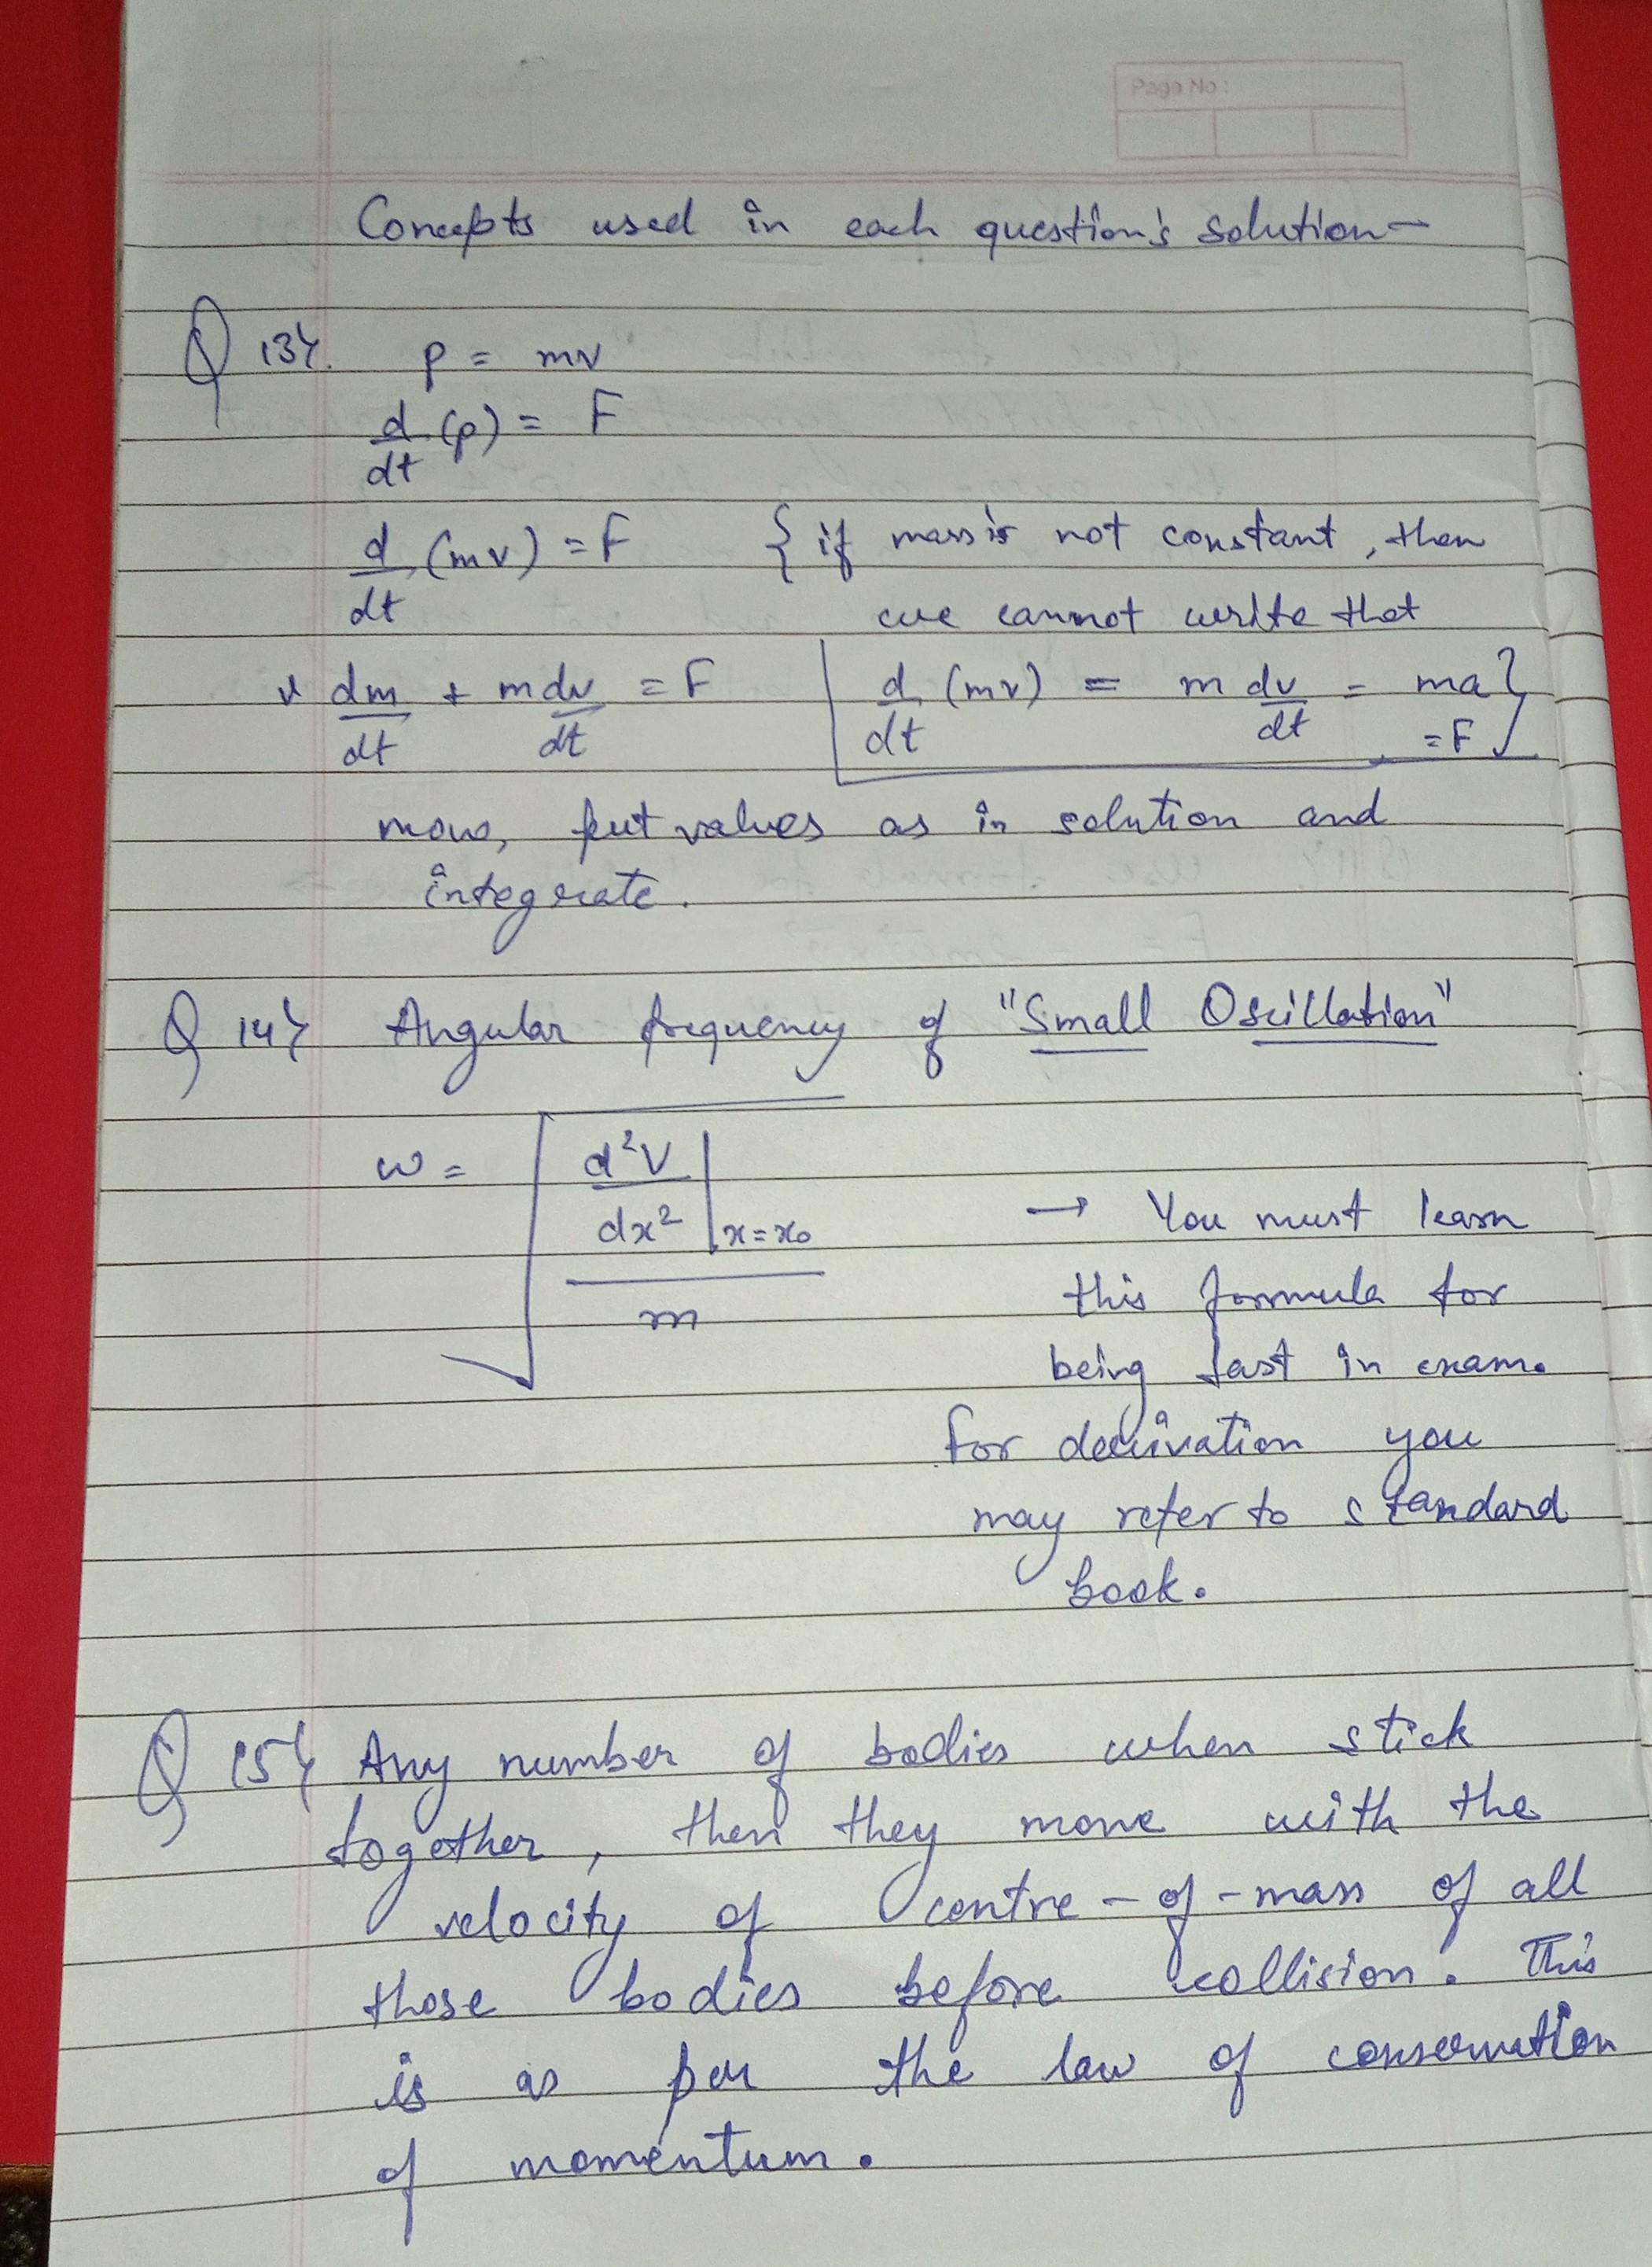 Page No:
Concepts used in each question's solution-
Q 13⟩. p = mv
d/dt (p) = F
d/dt (mv) = F { if mass is not constant, then
we cannot write that
v dm/dt + m dv/dt = F d/dt (mv) = m dv/dt = ma }
= F
now, put values as in solution and
integrate.
Q 14⟩ Angular frequency of "Small Oscillation"
ω = √( d²V/dx² |x=x₀ / m )
→ You must learn
this formula for
being fast in exam.
for derivation you
may refer to standard
book.
Q 15⟩ Any number of bodies when stick
together, then they move with the
velocity of centre-of-mass of all
those bodies before collision. This
is as per the law of conservation
of momentum.